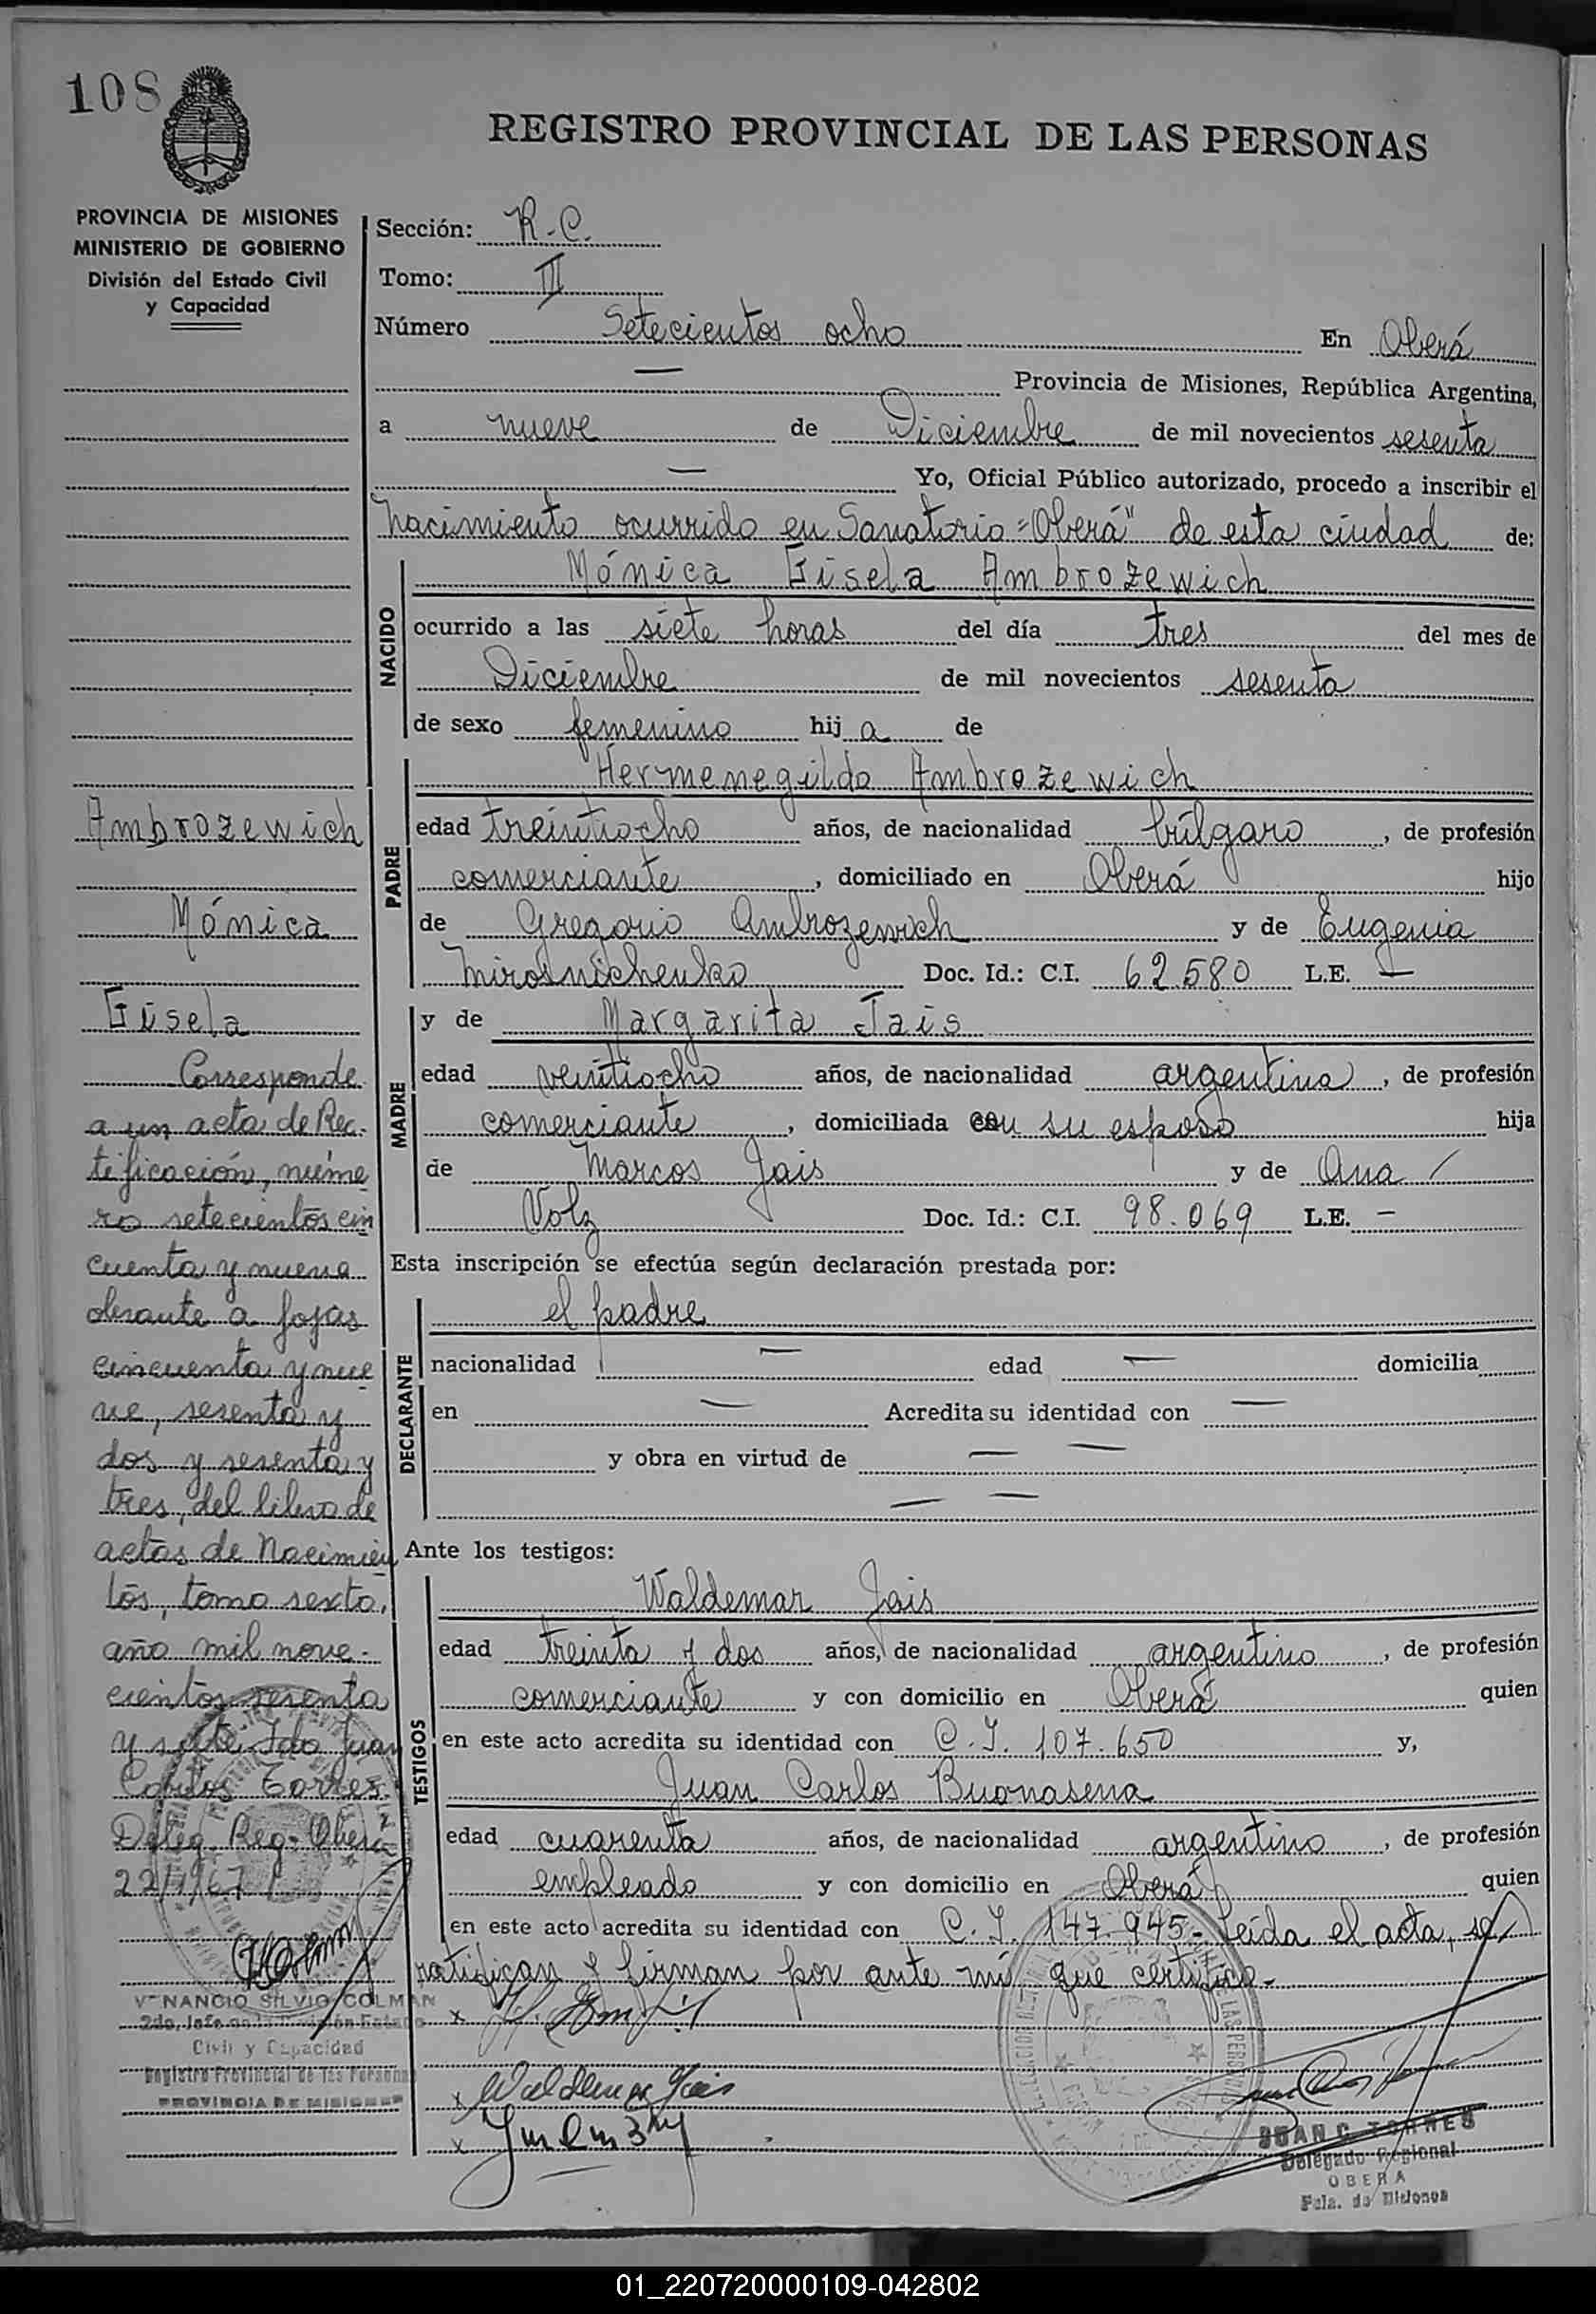 108
REGISTRO PROVINCIAL DE LAS PERSONAS
PROVINCIA DE MISIONES
MINISTERIO DE GOBIERNO
División del Estado Civil
y Capacidad
Sección: R.C.
Tomo: II
Número Setecientos ocho En Oberá
— Provincia de Misiones, República Argentina,
a nueve de Diciembre de mil novecientos sesenta
— Yo, Oficial Público autorizado, procedo a inscribir el
nacimiento ocurrido en Sanatorio "Oberá" de esta ciudad de:
NACIDO
Mónica Gisela Ambrozewich
ocurrido a las siete horas del día tres del mes de
Diciembre de mil novecientos sesenta
de sexo femenino hija de
PADRE
Hermenegildo Ambrozewich
edad treintiocho años, de nacionalidad búlgaro, de profesión
comerciante, domiciliado en Oberá hijo
de Gregorio Ambrozewich y de Eugenia
Mirosnichenko Doc. Id.: C.I. 62.580 L.E. —
MADRE
y de Margarita Jais
edad veintiocho años, de nacionalidad argentina, de profesión
comerciante, domiciliada con su esposo hija
de Marcos Jais y de Ana /
Volz Doc. Id.: C.I. 98.069 L.E. —
Esta inscripción se efectúa según declaración prestada por:
DECLARANTE
el padre
nacionalidad — edad — domicilia
en — Acredita su identidad con —
y obra en virtud de — —
— —
Ante los testigos:
TESTIGOS
Waldemar Jais
edad treinta y dos años, de nacionalidad argentino, de profesión
comerciante y con domicilio en Oberá quien
en este acto acredita su identidad con C.I. 107.650 y,
Juan Carlos Buonasena
edad cuarenta años, de nacionalidad argentino, de profesión
empleado y con domicilio en Oberá quien
en este acto acredita su identidad con C.I. 147.945.- Leída el acta, se
ratifican y firman por ante mí que certifico.-
x
x Waldemar Jais
x
JUAN C. TORRES
Delegado Regional
OBERA
Pcia. de Misiones
Ambrozewich
Mónica
Gisela
Corresponde
a un acta de Rec-
tificación, núme
ro setecientos cin
cuenta y nueve
obrante a fojas
cincuenta y nue
ve, sesenta y
dos y sesenta y
tres, del libro de
actas de Nacimien
tos, tomo sexto,
año mil nove-
cientos sesenta
y siete. Fdo Juan
Carlos Torres.
Deleg. Reg. Oberá
22/1/67
VENANCIO SILVIO COLMAN
2do. Jefe de la División Estado
Civil y Capacidad
Registro Provincial de las Personas
PROVINCIA DE MISIONES
01_220720000109-042802